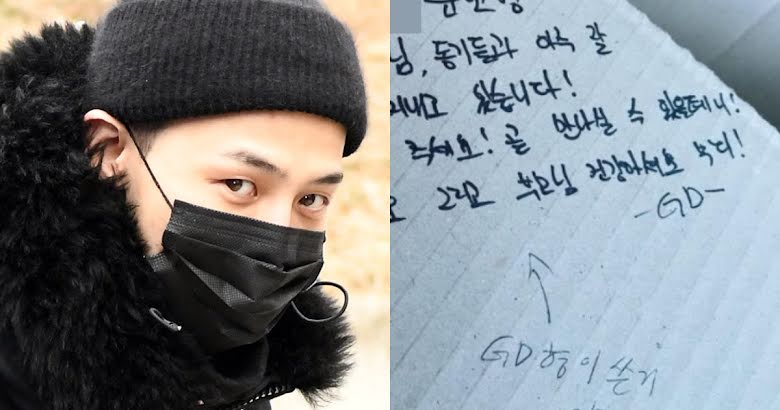 님, 동기들과 아주 잘
지내고 있습니다!
주세요! 곧 만나실 수 있을테니!
그리고 부모님 건강하세요 부디!
-GD-
GD형이 쓴거